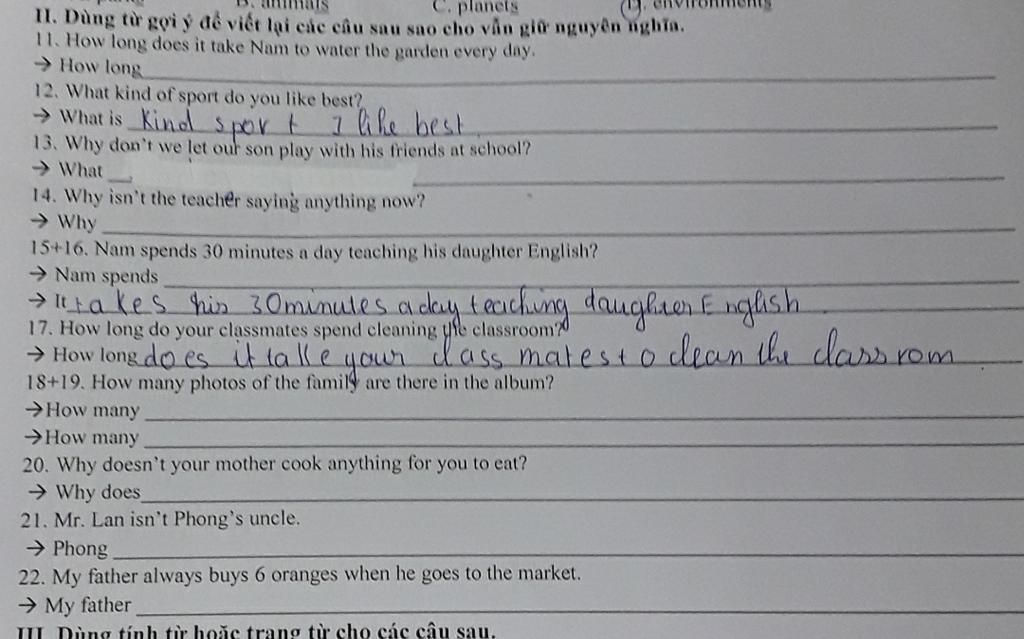 B. animals C. planets D. environments
II. Dùng từ gợi ý để viết lại các câu sau sao cho vẫn giữ nguyên nghĩa.
11. How long does it take Nam to water the garden every day.
→ How long
12. What kind of sport do you like best?
→ What is kind sport I like best
13. Why don't we let our son play with his friends at school?
→ What
14. Why isn't the teacher saying anything now?
→ Why
15+16. Nam spends 30 minutes a day teaching his daughter English?
→ Nam spends
→ It takes his 30 minutes a day teaching daughter English
17. How long do your classmates spend cleaning the classroom?
→ How long does it take your class mates to clean the class rom
18+19. How many photos of the family are there in the album?
→How many
→How many
20. Why doesn't your mother cook anything for you to eat?
→ Why does
21. Mr. Lan isn't Phong's uncle.
→ Phong
22. My father always buys 6 oranges when he goes to the market.
→ My father
III. Dùng tính từ hoặc trạng từ cho các câu sau.